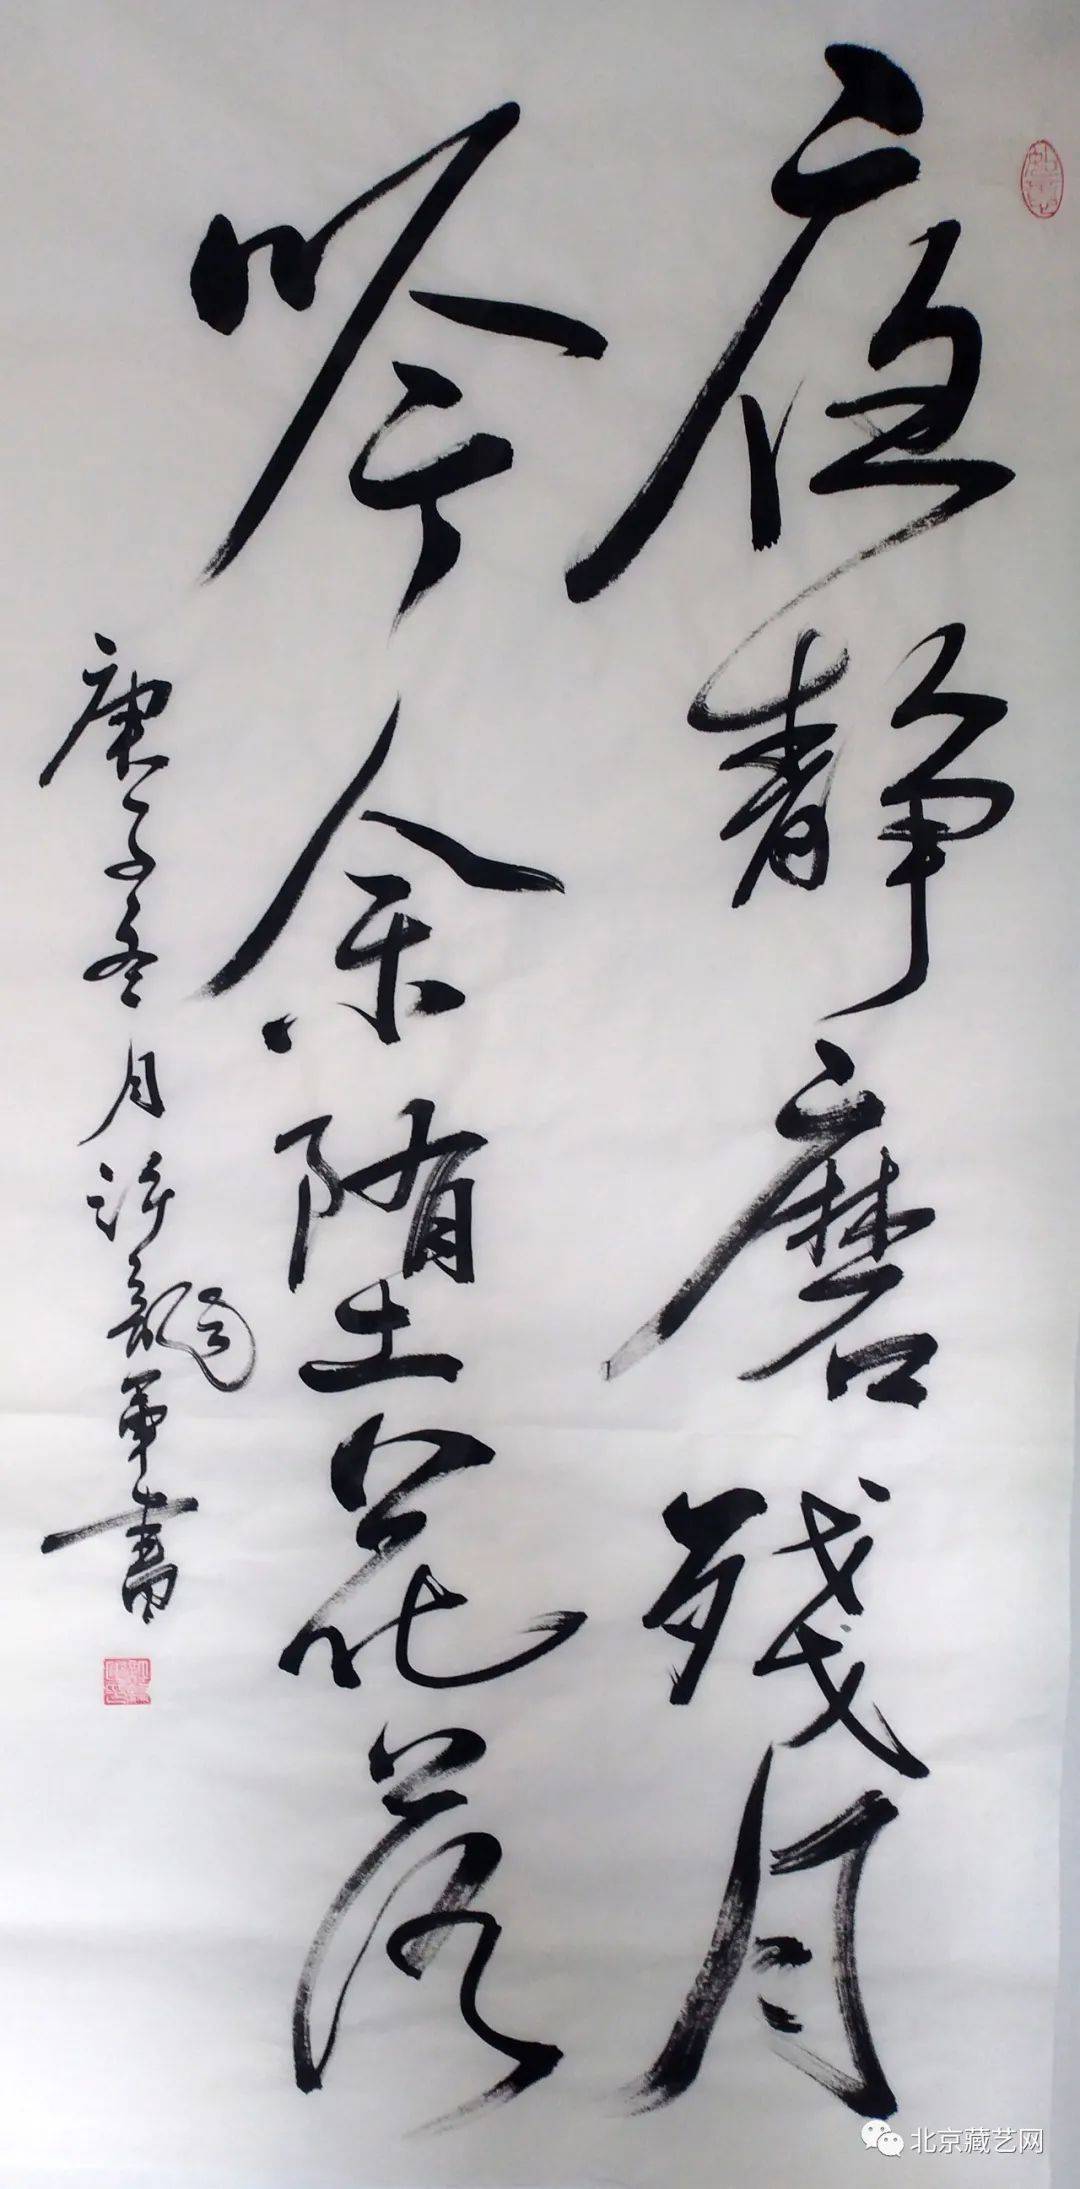 夜静磨残月
吟余堕花落
庚子冬月许龙军书
北京藏艺网